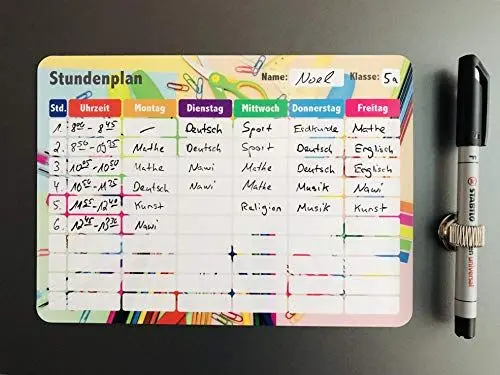 Stundenplan Name: Noel Klasse: 5a
Std. Uhrzeit Montag Dienstag Mittwoch Donnerstag Freitag
1. 8⁰⁰ - 8⁴⁵ – Deutsch Sport Erdkunde Mathe
2. 8⁵⁰ - 09³⁵ Mathe Deutsch Sport Deutsch Englisch
3. 10⁰⁵ - 10⁵⁰ Mathe Nawi Mathe Deutsch Englisch
4. 10⁵⁰ - 11³⁵ Deutsch Nawi Mathe Musik Nawi
5. 11⁵⁵ - 12⁴⁰ Kunst Religion Musik Kunst
6. 12⁴⁵ - 13³⁰ Nawi
F
STABILO
universal